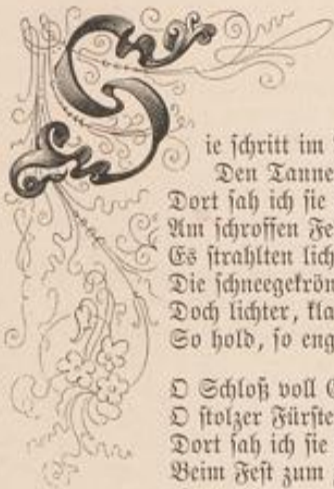 Sie schritt im
Den Tanne
Dort sah ich sie
Am schroffen Fe
Es strahlten lich
Die schneegekrön
Doch lichter, kla
So hold, so eng
O Schloß voll G
O stolzer Fürste
Dort sah ich sie
Beim Fest zum